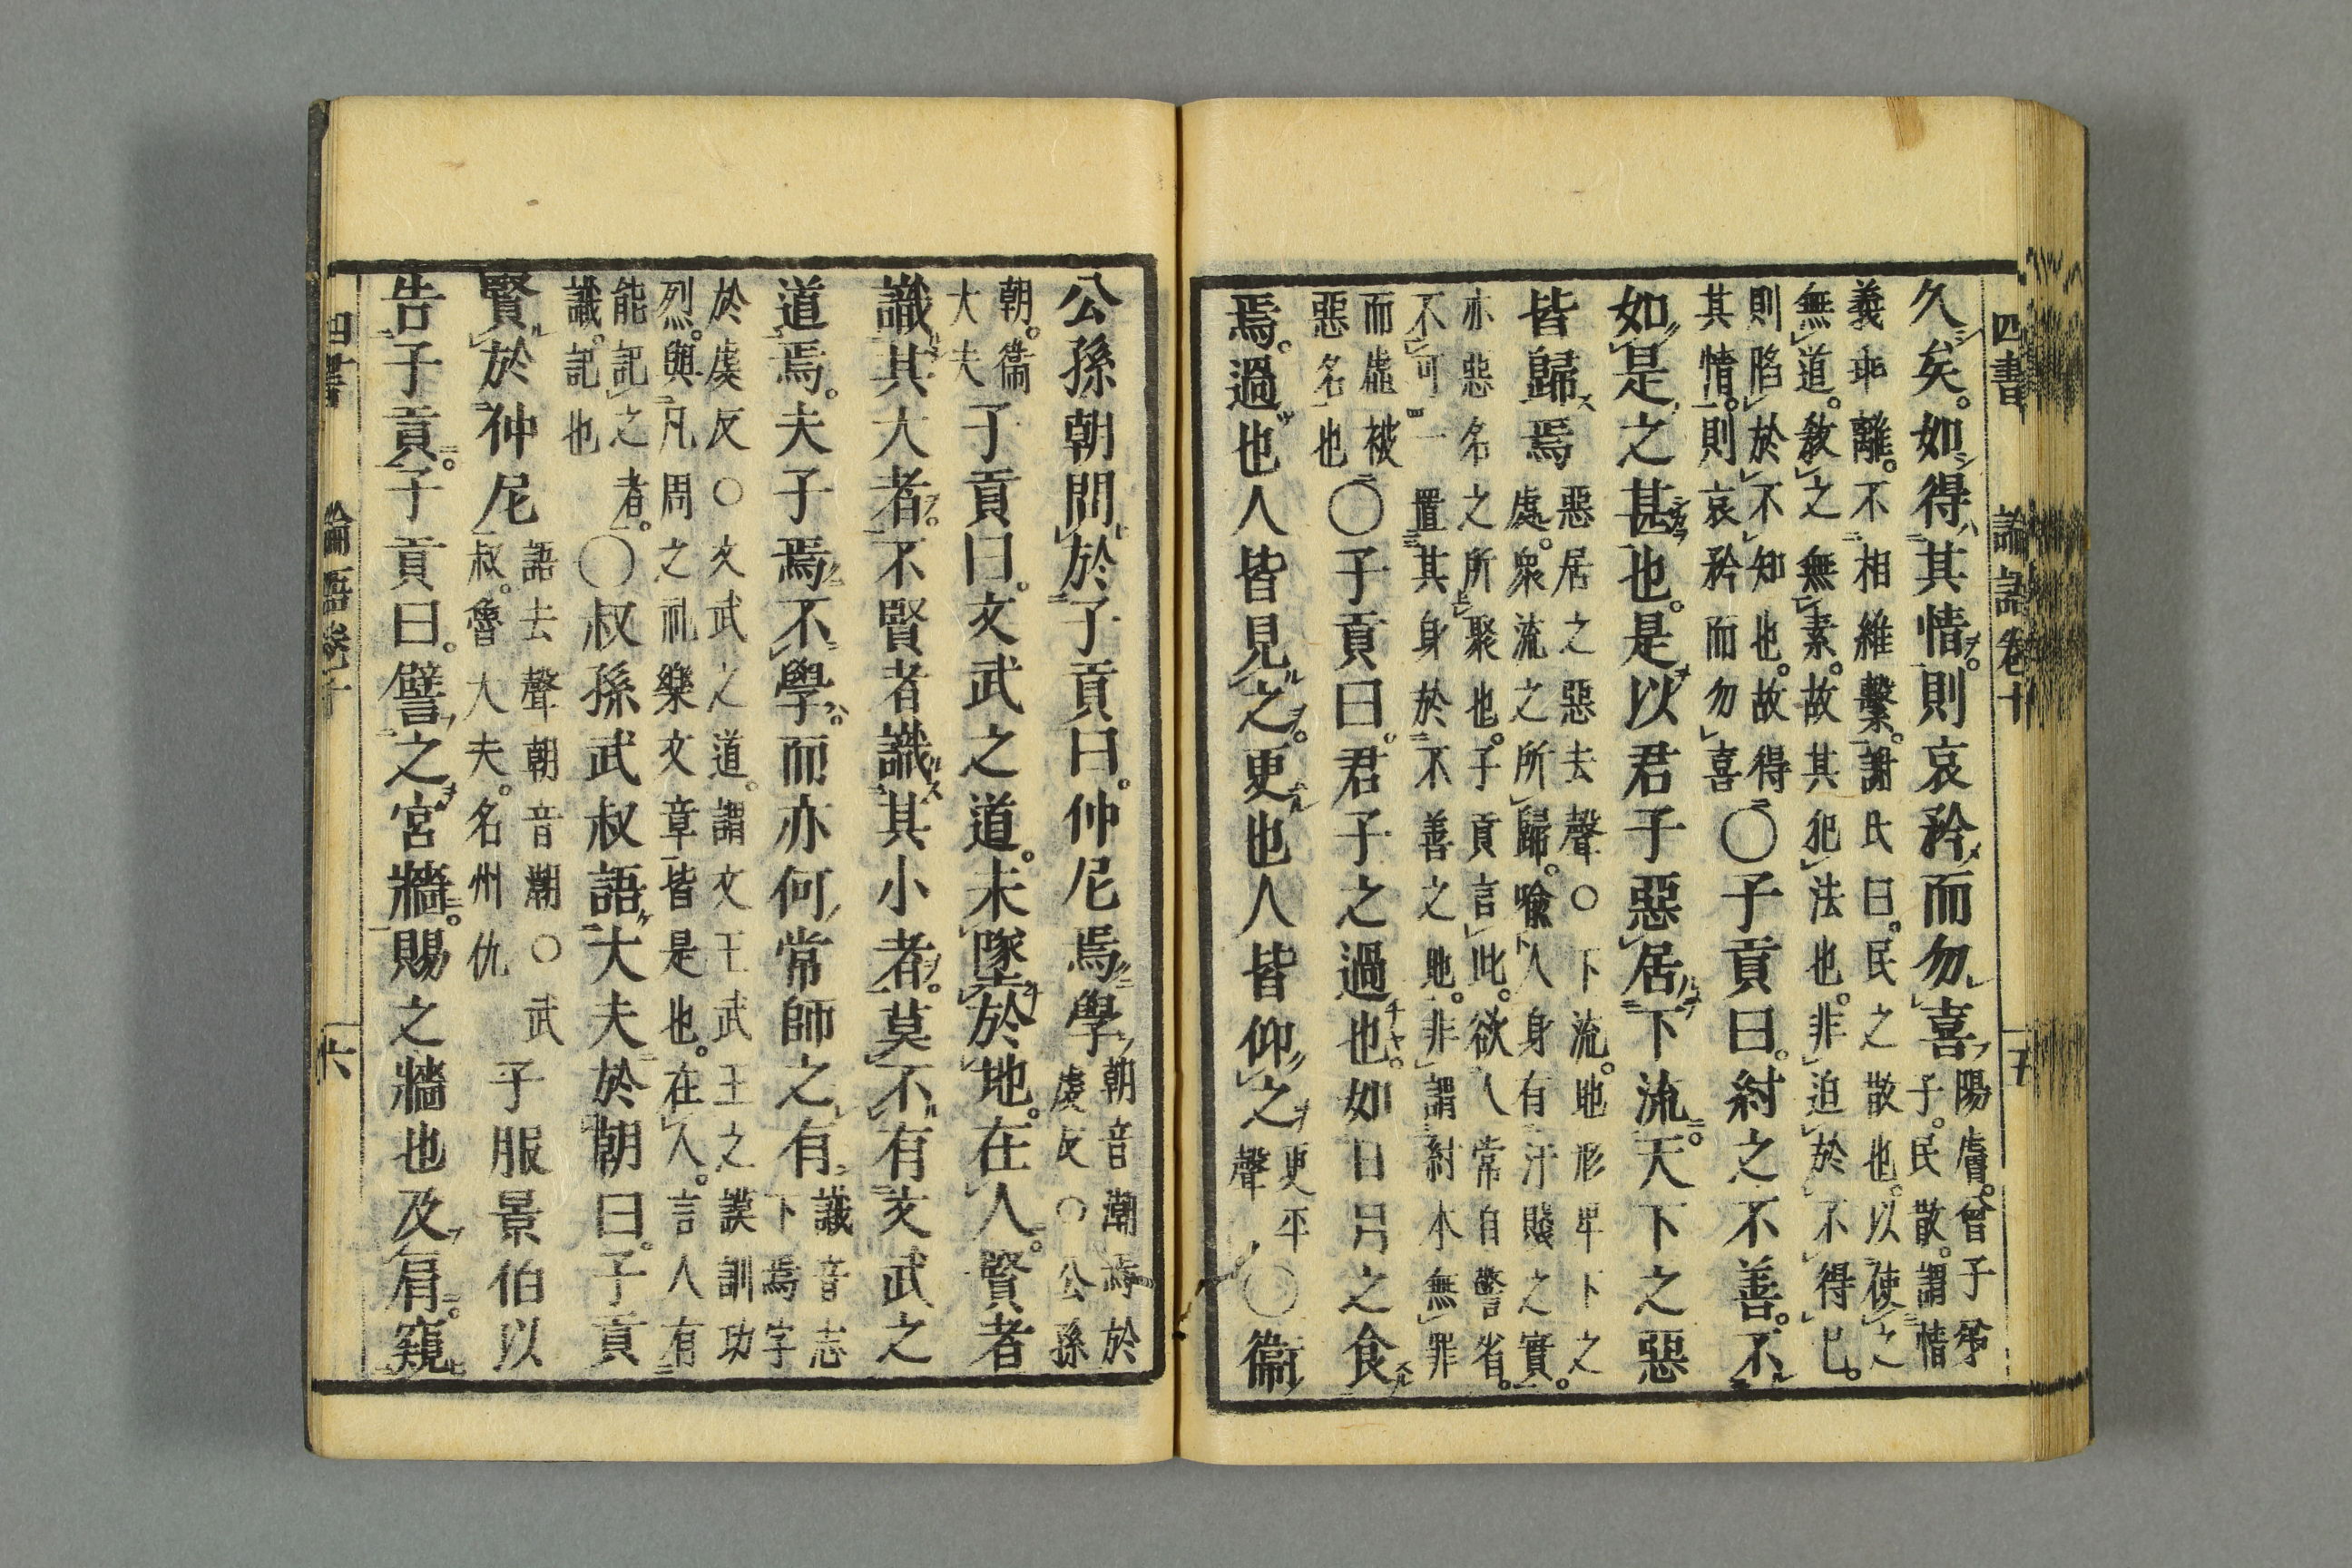 四書 論語卷十 五
久矣。如得其情。則哀矜而勿喜 陽膚。曾子弟子。民散。謂情
義乖離。不相維繫。謝氏曰。民之散也。以使之
無道。敎之無素。故其犯法也。非迫於不得已。
則陷於不知也。故得
其情。則哀矜而勿喜 〇子貢曰。紂之不善。不
如是之甚也。是以君子惡居下流。天下之惡
皆歸焉 惡居之惡去聲〇下流。地形卑下之
處。衆流之所歸。喩人身有汙賤之實。
亦惡名之所聚也。子貢言此。欲人常自警省。
不可一置其身於不善之地。非謂紂本無罪
而虛被
惡名也 〇子貢曰。君子之過也。如日月之食
焉。過也人皆見之。更也人皆仰之 更平
聲 〇衞
公孫朝問於子貢曰。仲尼焉學 朝音潮焉於
虔反〇公孫
朝。衞
大夫 子貢曰。文武之道。未墜於地。在人。賢者
識其大者。不賢者識其小者。莫不有文武之
道焉。夫子焉不學。而亦何常師之有 識音志
下焉字
於虔反〇文武之道。謂文王武王之謨訓功
烈。與凡周之礼樂文章皆是也。在人。言人有
能記之者。
識。記也 〇叔孫武叔語大夫於朝曰。子貢
賢於仲尼 語去聲朝音潮〇武
叔。魯大夫。名州仇 子服景伯以
告子貢。子貢曰。譬之宮牆。賜之牆也及肩。窺
四書 論語卷十 六